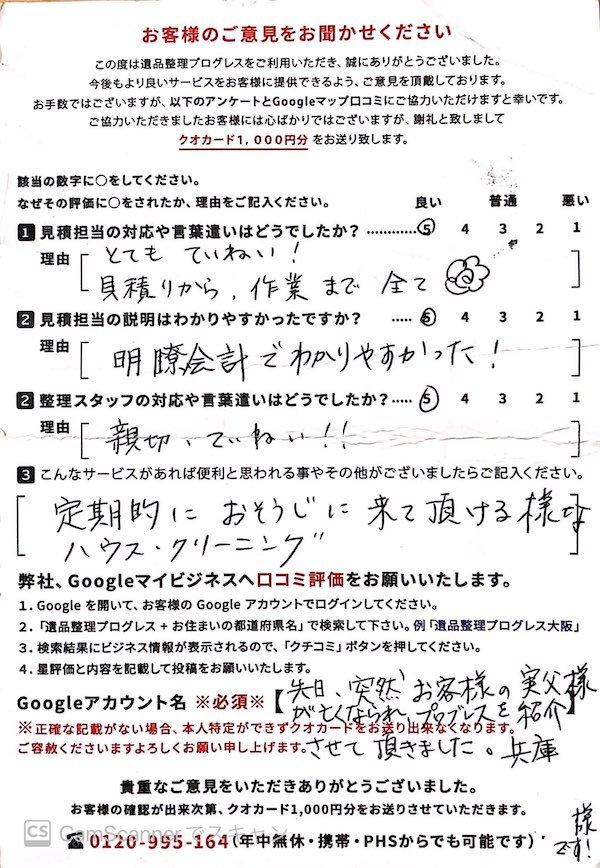 お客様のご意見をお聞かせください
この度は遺品整理プログレスをご利用いただき、誠にありがとうございました。
今後もより良いサービスをお客様に提供できるよう、ご意見を頂戴しております。
お手数ではございますが、以下のアンケートとGoogleマップ口コミにご協力いただけますと幸いです。
ご協力いただきましたお客様には心ばかりではございますが、謝礼と致しまして
クオカード1,000円分 をお送り致します。
該当の数字に○をしてください。
なぜその評価に○をされたか、理由をご記入ください。 良い 普通 悪い
1 見積担当の対応や言葉遣いはどうでしたか? ………… 5 4 3 2 1
理由 [ とても ていねい!
見積りから、作業まで 全て ]
2 見積担当の説明はわかりやすかったですか? ….. 5 4 3 2 1
理由 [ 明瞭会計でわかりやすかった! ]
2 整理スタッフの対応や言葉遣いはどうでしたか? ….. 5 4 3 2 1
理由 [ 親切、ていねい!! ]
3 こんなサービスがあれば便利と思われる事やその他がございましたらご記入ください。
[ 定期的に おそうじに 来て頂ける様な
ハウス・クリーニング ]
弊社、Googleマイビジネスへ口コミ評価をお願いいたします。
1. Google を開いて、お客様の Google アカウントでログインしてください。
2. 「遺品整理プログレス + お住まいの都道府県名」で検索して下さい。例「遺品整理プログレス大阪」
3. 検索結果にビジネス情報が表示されるので、「クチコミ」ボタンを押してください。
4. 星評価と内容を記載して投稿をお願いいたします。
Googleアカウント名 ※必須※ 【 先日、突然 お客様の 実父様
が亡くなられ、プログレスを紹介 】
※正確な記載がない場合、本人特定ができずクオカードをお送り出来なくなります。
ご容赦くださいますようよろしくお願い申し上げます。 させて頂きました。兵庫
貴重なご意見をいただきありがとうございました。
お客様の確認が出来次第、クオカード1,000円分をお送りさせていただきます。
様
です!
CS CamScanner でスキャン
☎ 0120-995-164 (年中無休・携帯・PHSからでも可能です)